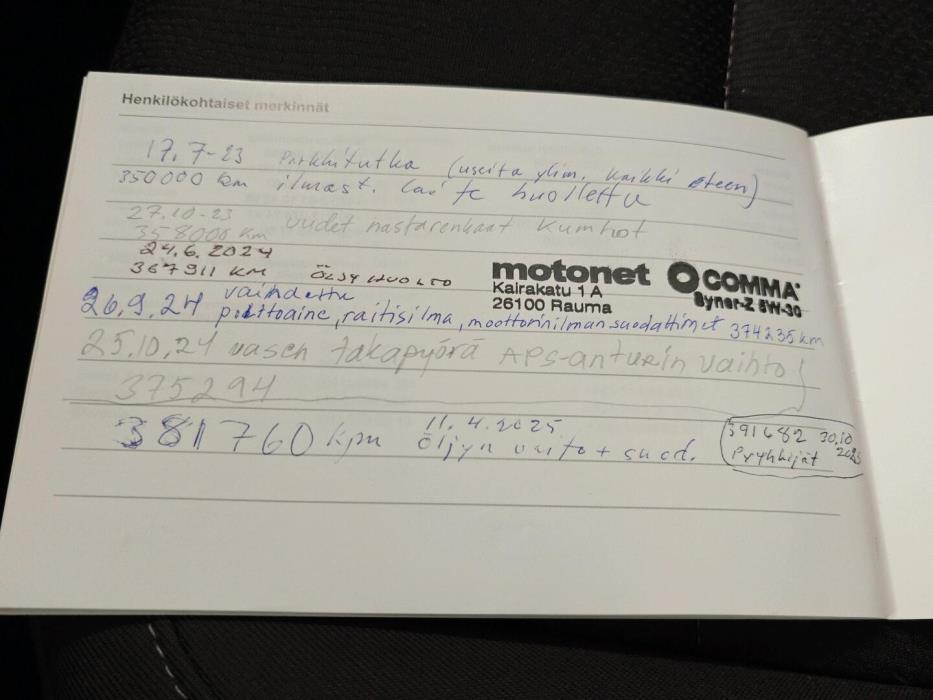 Henkilökohtaiset merkinnät
17.7-23 Parkkitutka (useita ylim. kaikki eteen)
350000 km ilmast. huollettu
27.10-23 uudet nastarenkaat Kumhot
358000 km
24.6.2024
367911 KM ÖLJYHUOLTO
motonet
Kairakatu 1 A
26100 Rauma
COMMA
Syner-Z 5W-30
26.9.24 vaihdettu
polttoaine, raitisilma, moottorinilmansuodattimet 374235 km
25.10.24 vasen takapyörä APS-anturin vaihto
375294
381760 km 11.4.2025
öljyn vaito + suod.
391682 30.10
Pyyhkijät 2025